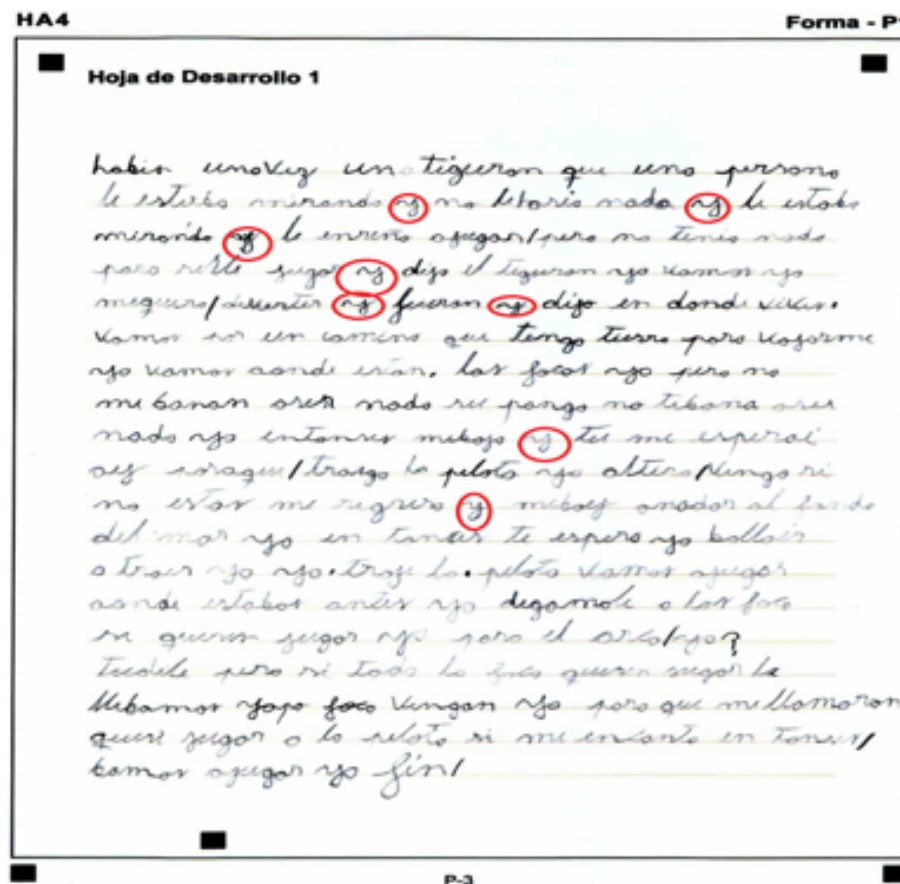 HA4
Forma - P
Hoja de Desarrollo 1
habia unavez un tiguron que una persona
le estaba mirando y no letaria nada y le estaba
mirando y le enseño ajugar/pero no tenia nada
para jugar y dijo el tiguron yo vamos yo
divertir y fueron y dijo en donde vives.
vamos un camino que tenga tierra para
yo vamos aonde estan. las focas yo pero no
me banan aser nada no tebana aser
nada yo entonses mebajo y tu me esperai
traigo la pelota yo altiro/vengo si
no estas me regreso y meboy anadar al fondo
del mar yo en tonses te espero yo
a traer yo yo. traje la. pelota vamos ajugar
aonde estabas antes yo digamole a las foca
si quieren jugar yo para el arco/yo?
pero si toda la foca quieren jugar la
llebamos foca vengan yo para que me llamaron
jugar a la pelota si me encanta en tonses/
bamos ajugar yo fin/
P-3